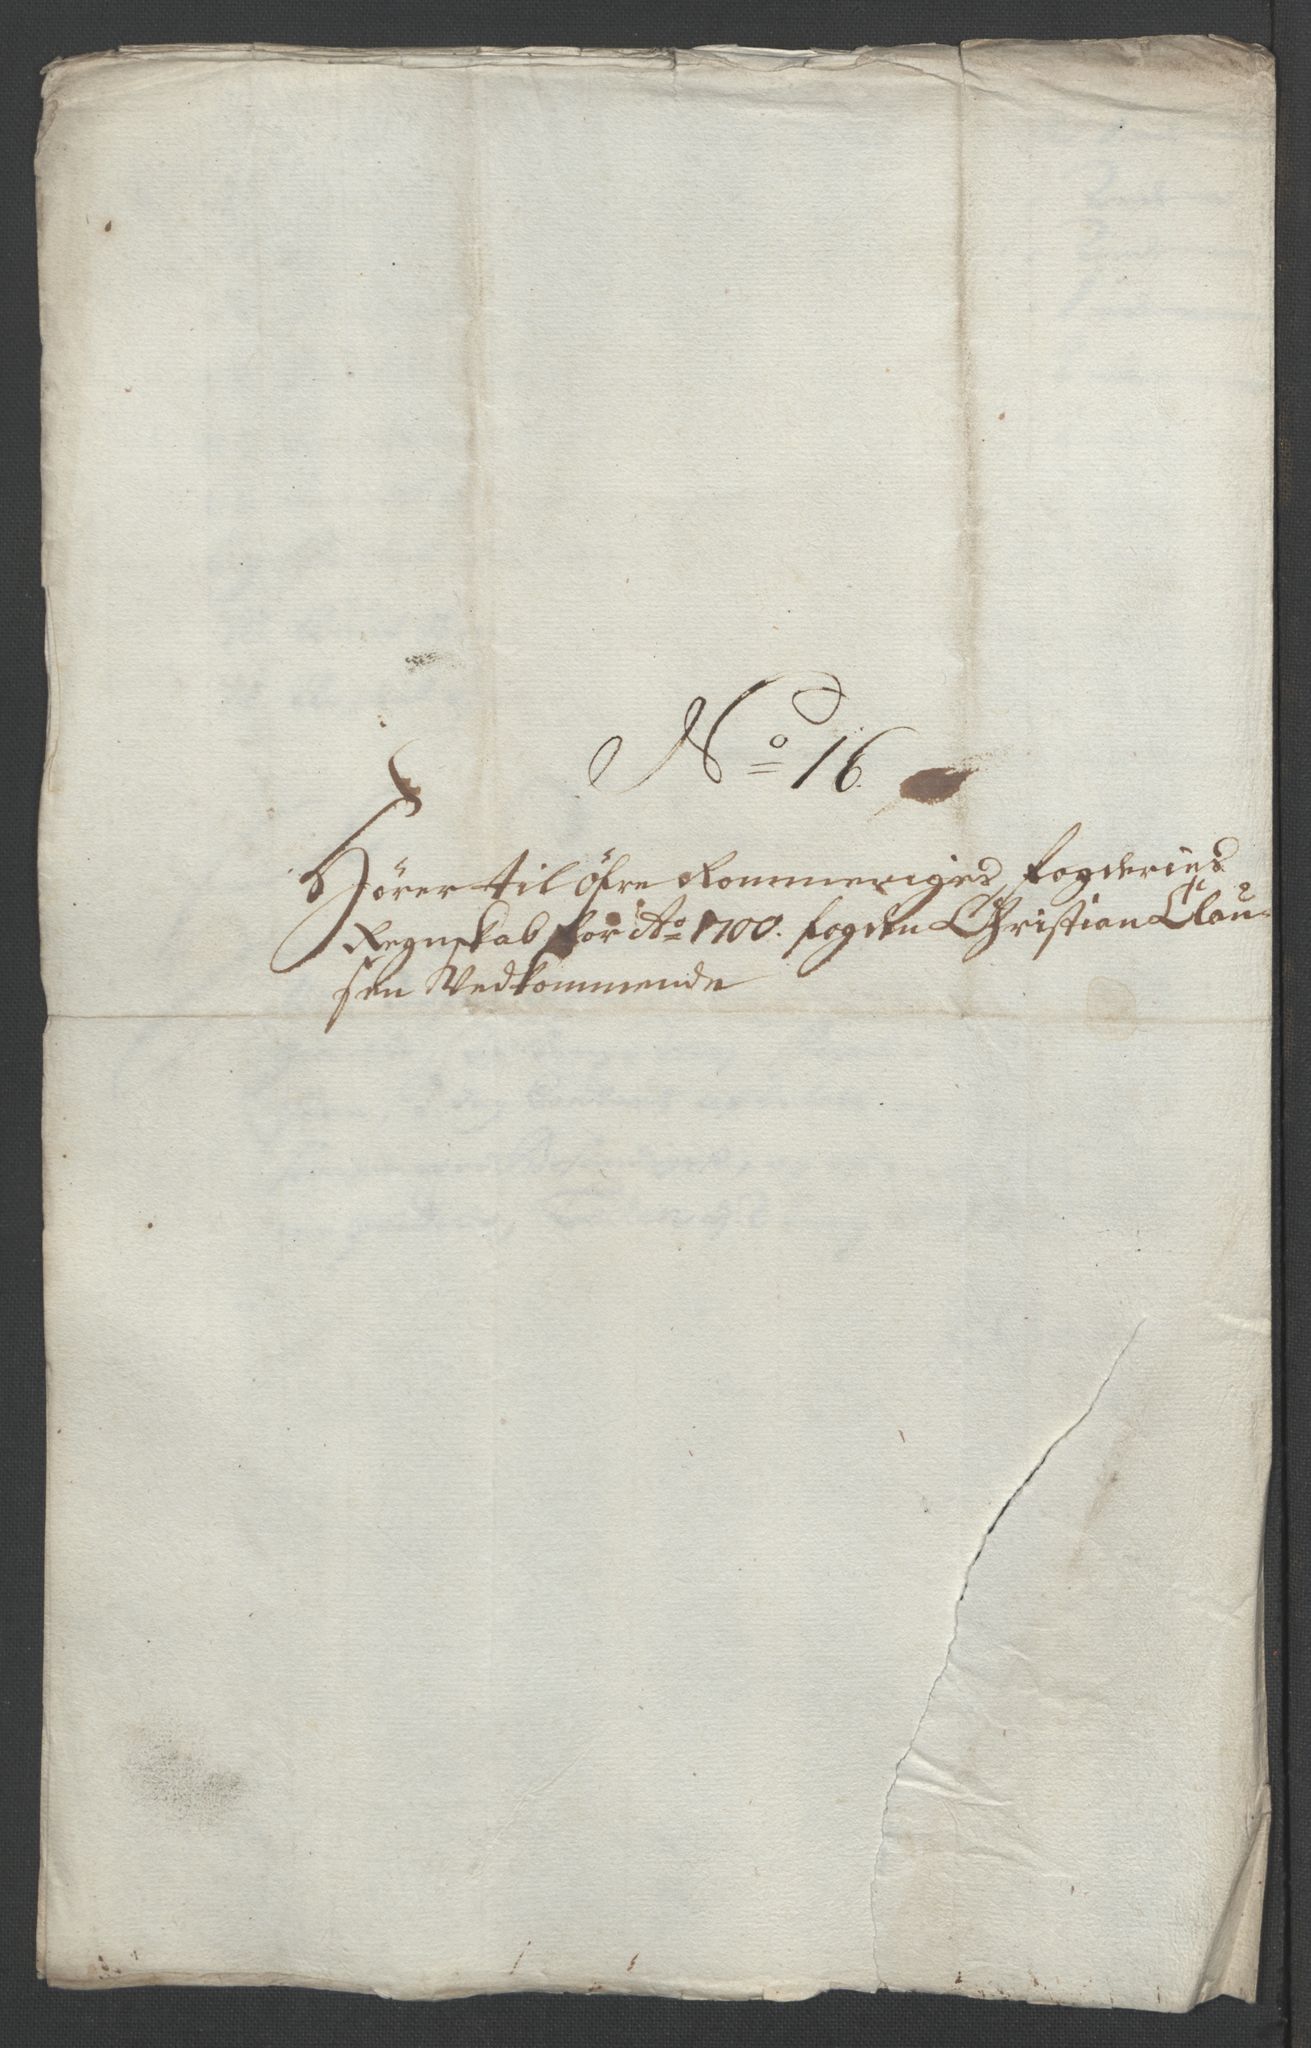 No 16.
Hörer til Öfre Rommeriges fogderies
Regnskab for Ao 1700. fogden Christian Clau-
sen Vedkommende